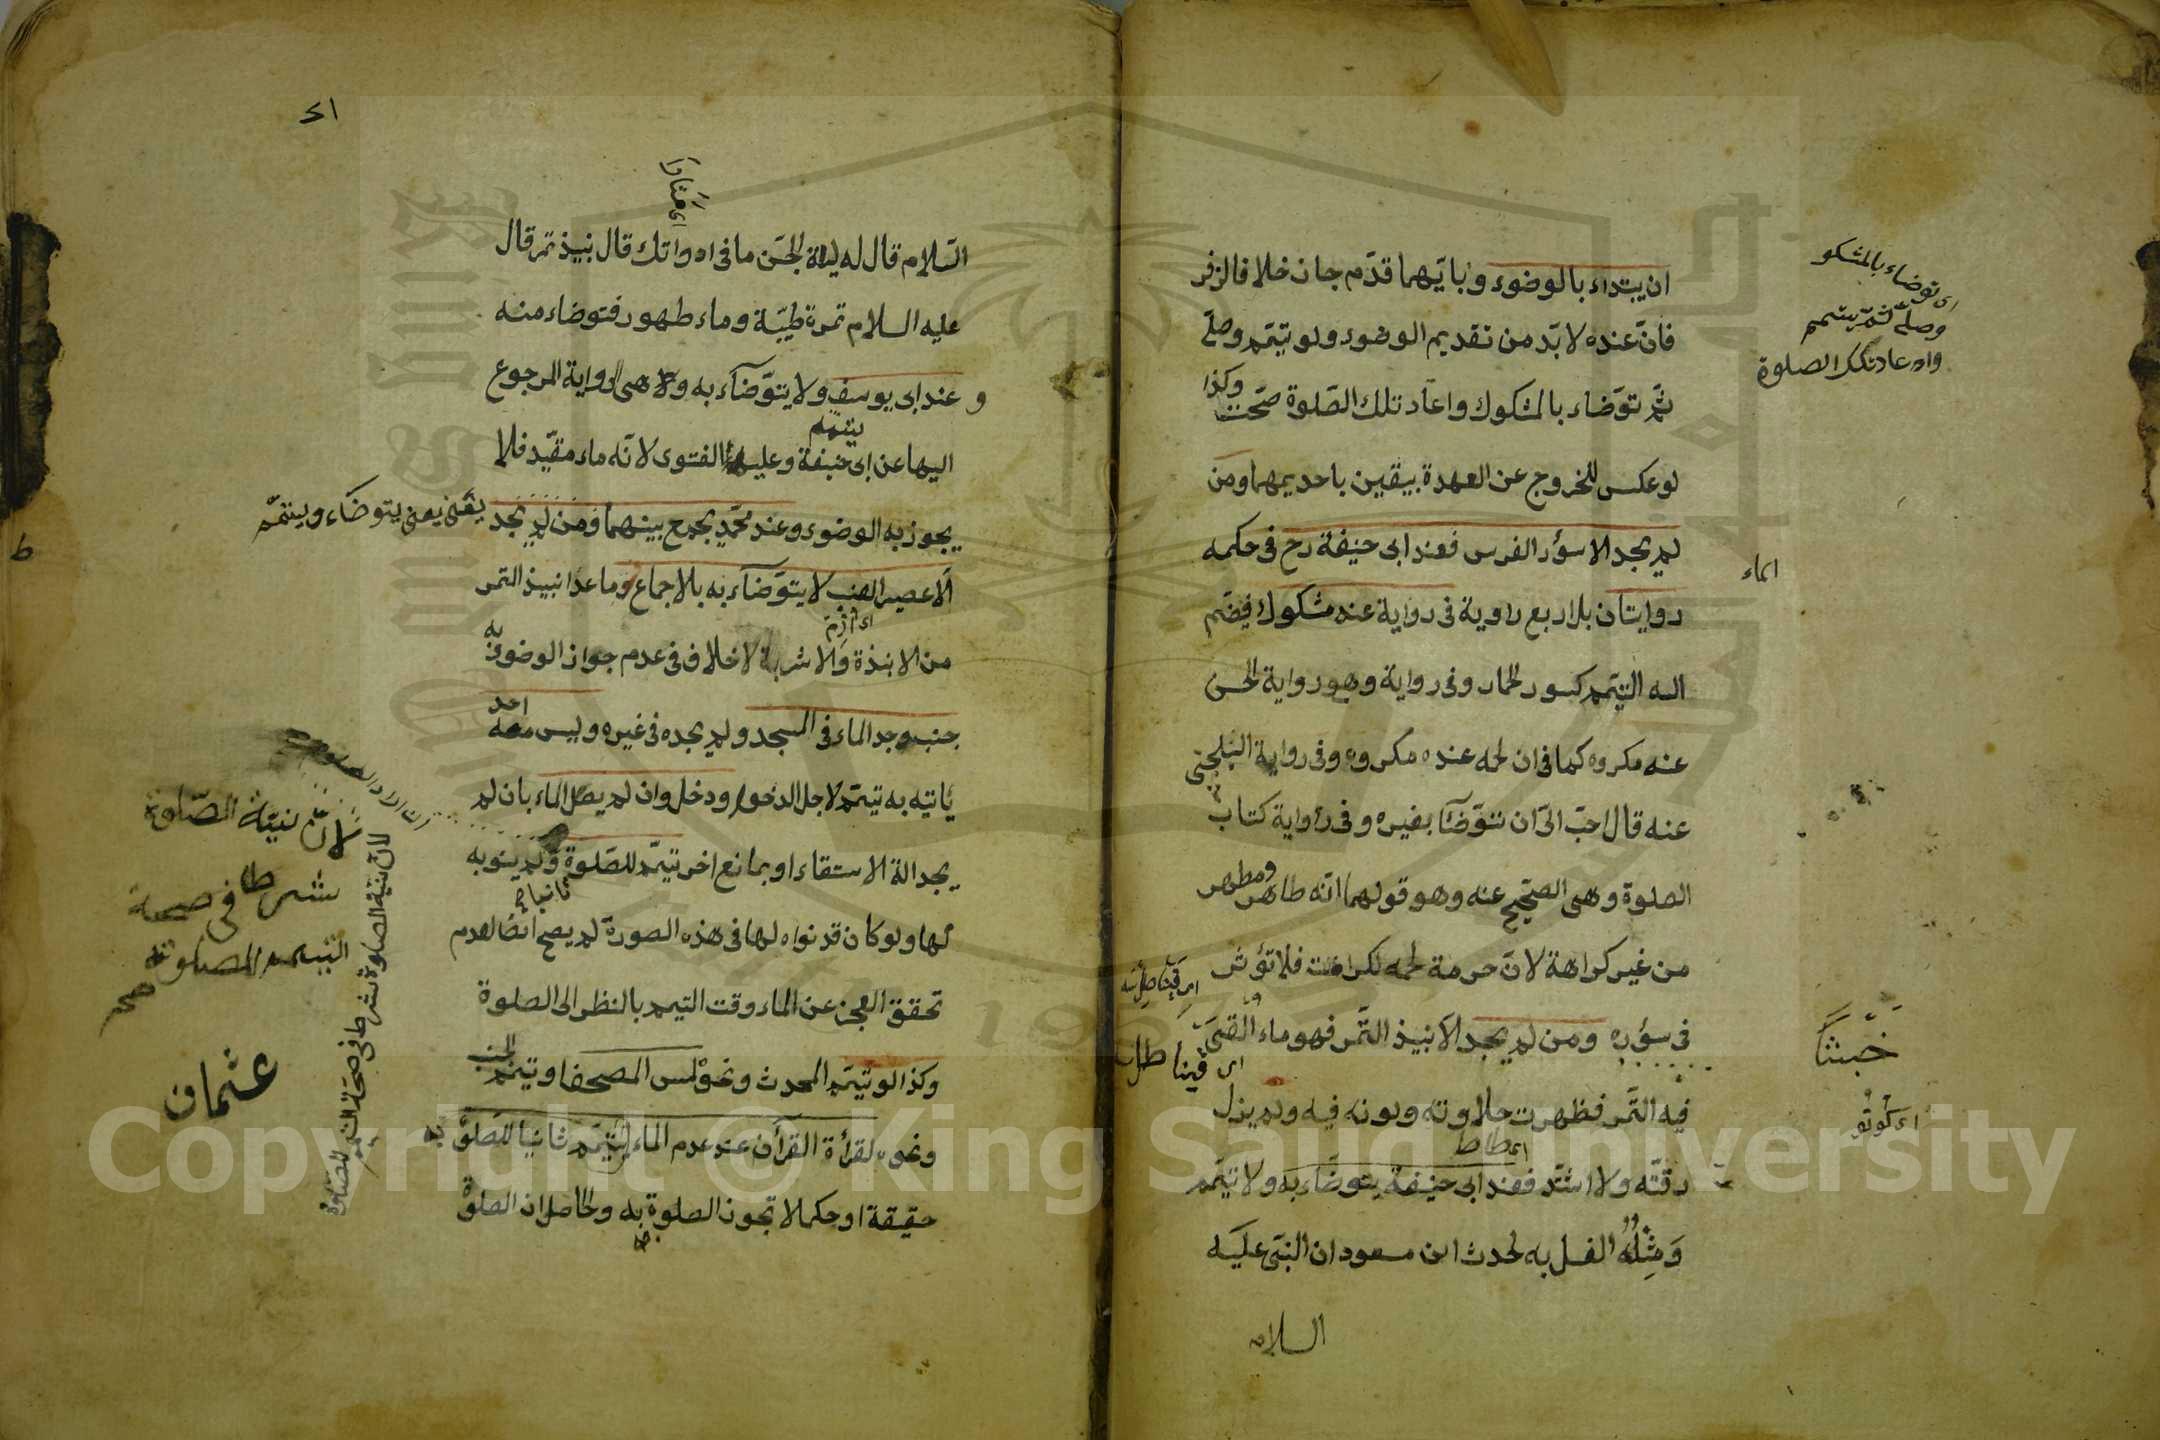 ان يبتداء بالوضوء وبايهما قدم جاز خلافا لزفر
فان عنده لا بد من تقديم الوضوء ولو تيمم وصلى
ثم توضاء بالمشكوك واعاد تلك الصلوة صحت وكذا
لو عكس للخروج عن العهدة بيقين باحديهما ومن
لم يجد الا سؤر الفرس فعند ابى حنيفة رح فى حكمه
روايتان بل اربع راوية فى رواية عنه مشكوك فيضم
اليه التيمم كسور الحمار وفى رواية وهو رواية الحسن
عنه مكروه كما فى ان لحمه عنده مكروه وفى رواية البلخى
عنه قال احب الى ان تتوضأ بغيره وفى رواية كتاب
الصلوة وهى الصحيح عنه وهو قولهما انه طاهر ومطهر
من غير كراهة لان حرمة لحمه لكرامته فلا تؤثر
فى سؤره ومن لم يجد الا نبيذ التمر فهو ماء القى
فيه التمر فظهرت حلاوته ولونه فيه ولم يزل
رقته ولا اشتد فعند ابى حنيفة يتوضاء به ولا تيمم
ومثله الغسل به لحدث ابن مسعود ان النبى عليه
السلام
اى توضاء بالمشكو
وصلى ثم يتيمم
واه عاد تلك الصلوة
الماء
خبثا
السلام قال له ليلة الجن ما فى اداواتك قال نبيذ تمر قال
عليه السلام تمرة طيبة وماء طهور فتوضاء منه
و عند ابى يوسف ولا يتوضآء به وهى الرواية المرجوع
يتيمم
اليها عن ابى حنيفة وعليه الفتوى لانه ماء مقيد فلا
يجوز به الوضوء وعند محمد يجمع بينهما ومن لم يجد
يعنى يعنى يتوضاء ويتيمم
الا عصير العنب لا يتوضآء به بالاجماع وما عدا نبيذ التمر
من الانبذة والاشربة لا خلاف فى عدم جواز الوضوء به
جنب وجد الماء فى المسجد ولم يجده فى غيره وليس معه احد
يأتيه به تيمم لاجل الدخول ودخل وان لم يصل الماء بان لم
يجد الة الاستقاء او بمانع اخر تيمم للصلوة ولم ينو به
ثانيا
لها ولو كان قد نواه لها فى هذه الصورة لم يصح ايضا لعدم
تحقق العجز عن الماء وقت التيمم بالنظر الى الصلوة
وكذا لو تيمم المحدث ونحو لمس المصحف او تيمم الجنب
ونحوه لقرأة القرآن عند عدم الماء ليتيمم ثانيا للصلوة
حقيقة او حكما لا تجوز الصلوة به والحاصل ان الصلوة
لان نية الصلوة
شرطا فى صحة
التيمم للصلوة
صح
عثمان
لان نية الصلوة شرطا فى صحة التيمم للصلوة
Copyright © King Saud University